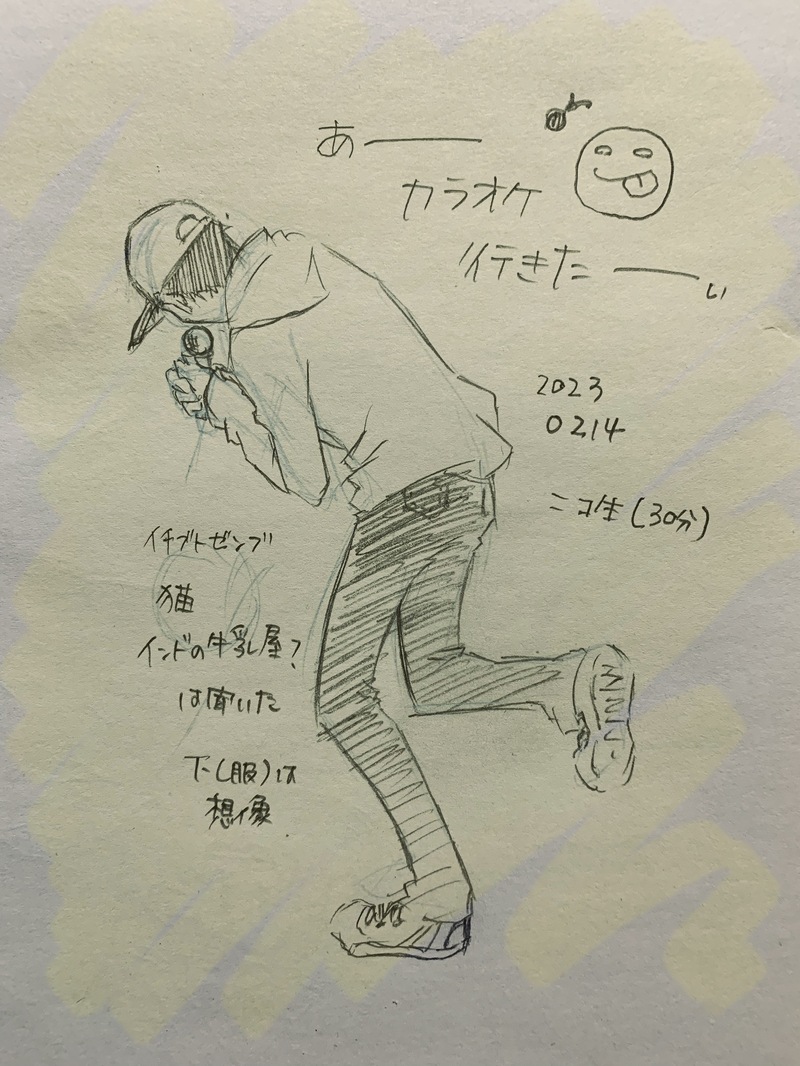 あ――
カラオケ
行きた――ぃ
2023
0214
ニコ生(30分)
イチブトゼンブ
猫
インドの牛乳屋?
は聞いた
下(服)は
想像